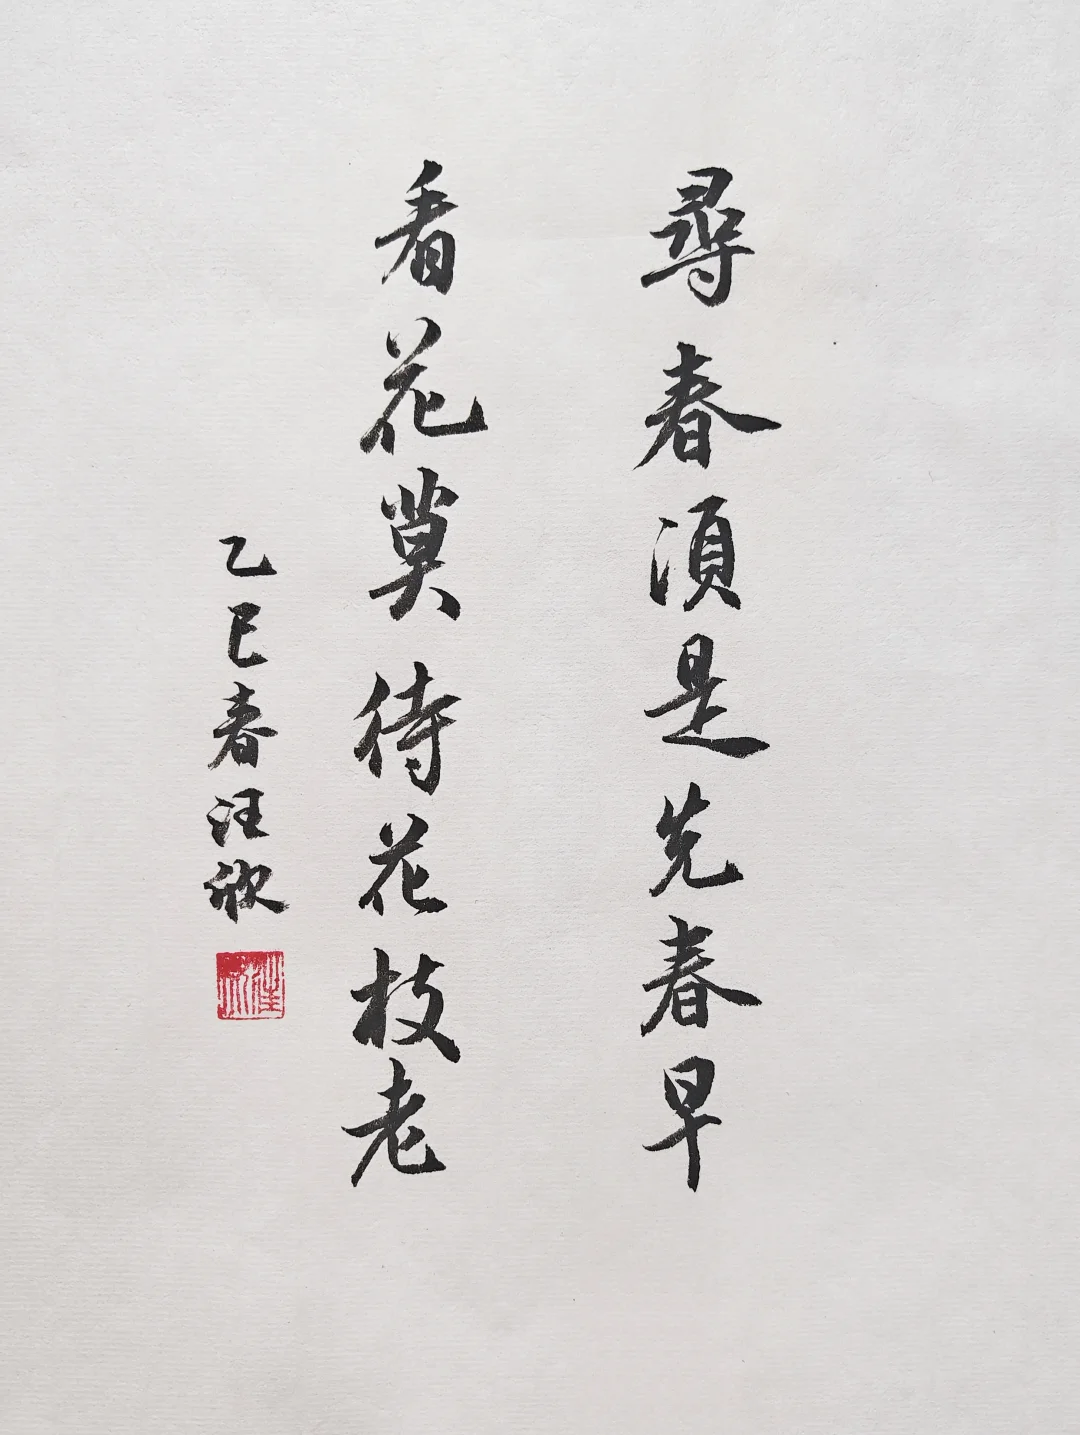 尋春須是先春早
看花莫待花枝老
乙巳春汪欣